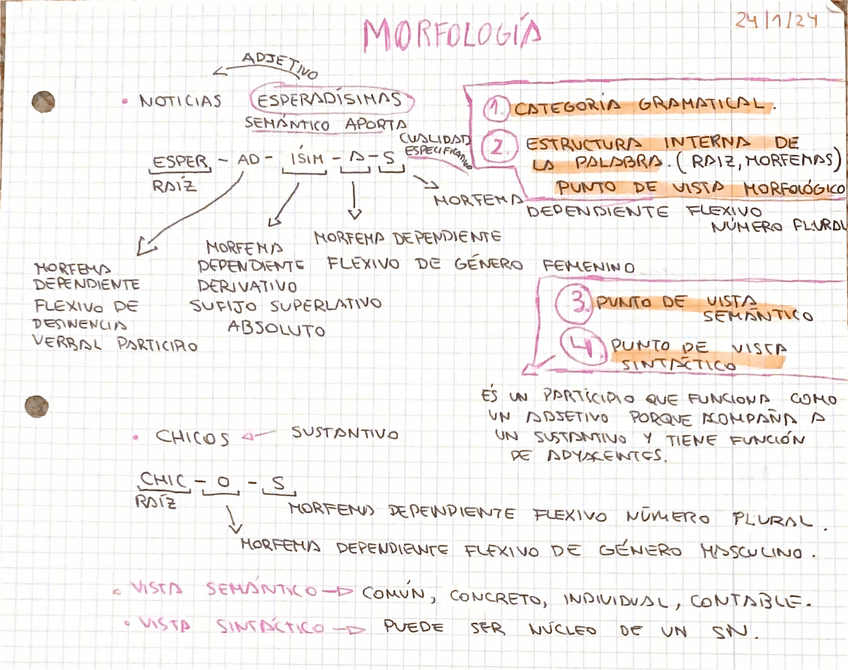 24/1/24
MORFOLOGÍA
ADJETIVO
• NOTICIAS ESPERADÍSIMAS
SEMÁNTICO APORTA
CUALIDAD
ESPECIFICATIVO
1. CATEGORÍA GRAMATICAL.
2. ESTRUCTURA INTERNA DE
LA PALABRA. (RAIZ, MORFEMAS)
PUNTO DE VISTA MORFOLÓGICO
ESPER - AD - ÍSIM - A - S
RAÍZ
MORFEMA
DEPENDIENTE FLEXIVO
NÚMERO PLURAL
MORFEMA DEPENDIENTE
FLEXIVO DE GÉNERO FEMENINO
MORFEMA
DEPENDIENTE
DERIVATIVO
SUFIJO SUPERLATIVO
ABSOLUTO
MORFEMA
DEPENDIENTE
FLEXIVO DE
DESINENCIA
VERBAL PARTICIPIO
3. PUNTO DE VISTA
SEMÁNTICO
4. PUNTO DE VISTA
SINTÁCTICO
ÉS UN PARTICIPIO QUE FUNCIONA COMO
UN ADJETIVO PORQUE ACOMPAÑA A
UN SUSTANTIVO Y TIENE FUNCIÓN
DE ADYACENTES.
• CHICOS SUSTANTIVO
CHIC - O - S
RAÍZ
MORFEMA DEPENDIENTE FLEXIVO NÚMERO PLURAL.
MORFEMA DEPENDIENTE FLEXIVO DE GÉNERO MASCULINO.
• VISTA SEMÁNTICO → COMÚN, CONCRETO, INDIVIDUAL, CONTABLE.
• VISTA SINTÁCTICO → PUEDE SER NÚCLEO DE UN SN.